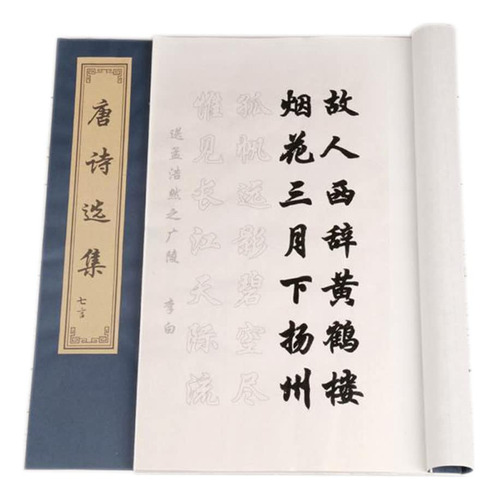 唐诗选集
七言
故人西辞黄鹤楼
烟花三月下扬州
孤帆远影碧空尽
惟见长江天际流
送孟浩然之广陵 李白